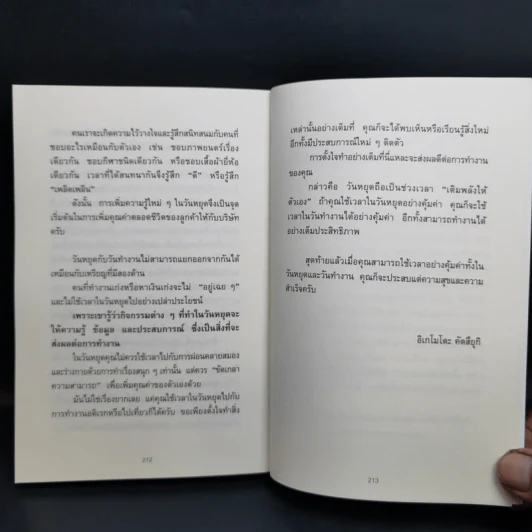 คนเราจะเกิดความไว้วางใจและรู้สึกสนิทสนมกับคนที่
ชอบอะไรเหมือนกับตัวเอง เช่น ชอบภาพยนตร์เรื่อง
เดียวกัน ชอบกีฬาชนิดเดียวกัน หรือชอบเสื้อผ้ายี่ห้อ
เดียวกัน เวลาที่ได้สนทนากันจึงรู้สึก “ดี” หรือรู้สึก
“เพลิดเพลิน”
ดังนั้น การเพิ่มความรู้ใหม่ ๆ ในวันหยุดจึงเป็นจุด
เริ่มต้นในการเพิ่มคุณค่าตลอดชีวิตของลูกค้าให้กับบริษัท
ครับ
วันหยุดกับวันทำงานไม่สามารถแยกออกจากกันได้
เหมือนกับเหรียญที่มีสองด้าน
คนที่ทำงานเก่งหรือหาเงินเก่งจะไม่ “อยู่เฉย ๆ”
และไม่ใช้เวลาในวันหยุดไปอย่างเปล่าประโยชน์
เพราะเขารู้ว่ากิจกรรมต่าง ๆ ที่ทำในวันหยุดจะ
ให้ความรู้ ข้อมูล และประสบการณ์ ซึ่งเป็นสิ่งที่จะ
ส่งผลต่อการทำงาน
ในวันหยุดคุณไม่ควรใช้เวลาไปกับการผ่อนคลายสมอง
และร่างกายด้วยการทำเรื่องสนุก ๆ เท่านั้น แต่ควร “ขัดเกลา
ความสามารถ” เพื่อเพิ่มคุณค่าของตัวเองด้วย
มันไม่ใช่เรื่องยากเลย แค่คุณใช้เวลาในวันหยุดไปกับ
การทำงานอดิเรกหรือไปเที่ยวก็ได้ครับ ขอเพียงตั้งใจทำสิ่ง
212
เหล่านั้นอย่างเต็มที่ คุณก็จะได้พบเห็นหรือเรียนรู้สิ่งใหม่
อีกทั้งมีประสบการณ์ใหม่ ๆ ติดตัว
การตั้งใจทำอย่างเต็มที่นี่แหละจะส่งผลดีต่อการทำงาน
ของคุณ
กล่าวคือ วันหยุดถือเป็นช่วงเวลา “เติมพลังให้
ตัวเอง” ถ้าคุณใช้เวลาในวันหยุดอย่างคุ้มค่า คุณก็จะใช้
เวลาในวันทำงานได้อย่างคุ้มค่า อีกทั้งสามารถทำงานได้
อย่างเต็มประสิทธิภาพ
สุดท้ายแล้วเมื่อคุณสามารถใช้เวลาอย่างคุ้มค่าทั้งใน
วันหยุดและวันทำงาน คุณก็จะประสบแต่ความสุขและความ
สำเร็จครับ
อิเกโมโตะ คัตสึยุกิ
213